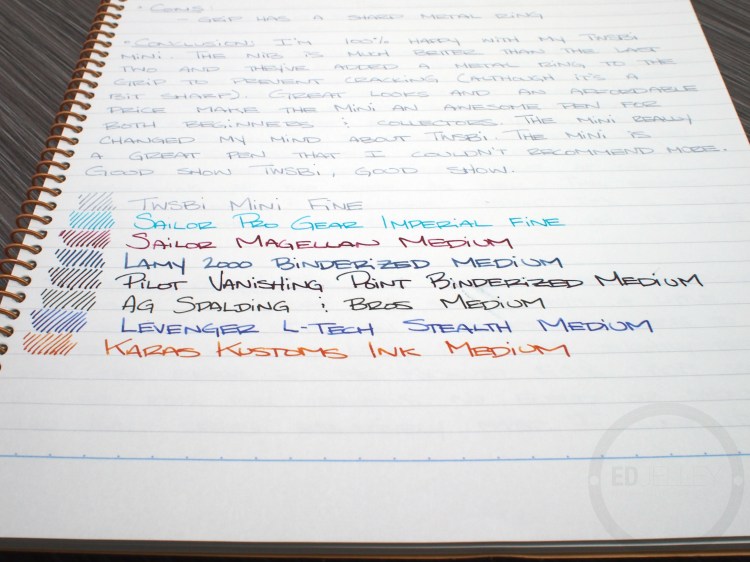 • Cons:
- Grip has a sharp metal ring
• Conclusion: I'm 100% happy with my TWSBI
Mini. The nib is much better than the last
two and they've added a metal ring to the
grip to prevent cracking (although it's a
bit sharp). Great looks and an affordable
price make the Mini an awesome pen for
both beginners & collectors. The Mini really
changed my mind about TWSBI. The Mini is
a great pen that I couldn't recommend more.
Good show TWSBI, good show.
TWSBI Mini Fine
Sailor Pro Gear Imperial Fine
Sailor Magellan Medium
Lamy 2000 Binderized Medium
Pilot Vanishing Point Binderized Medium
AG Spalding & Bros Medium
Levenger L-Tech Stealth Medium
Karas Kustoms Ink Medium
ED